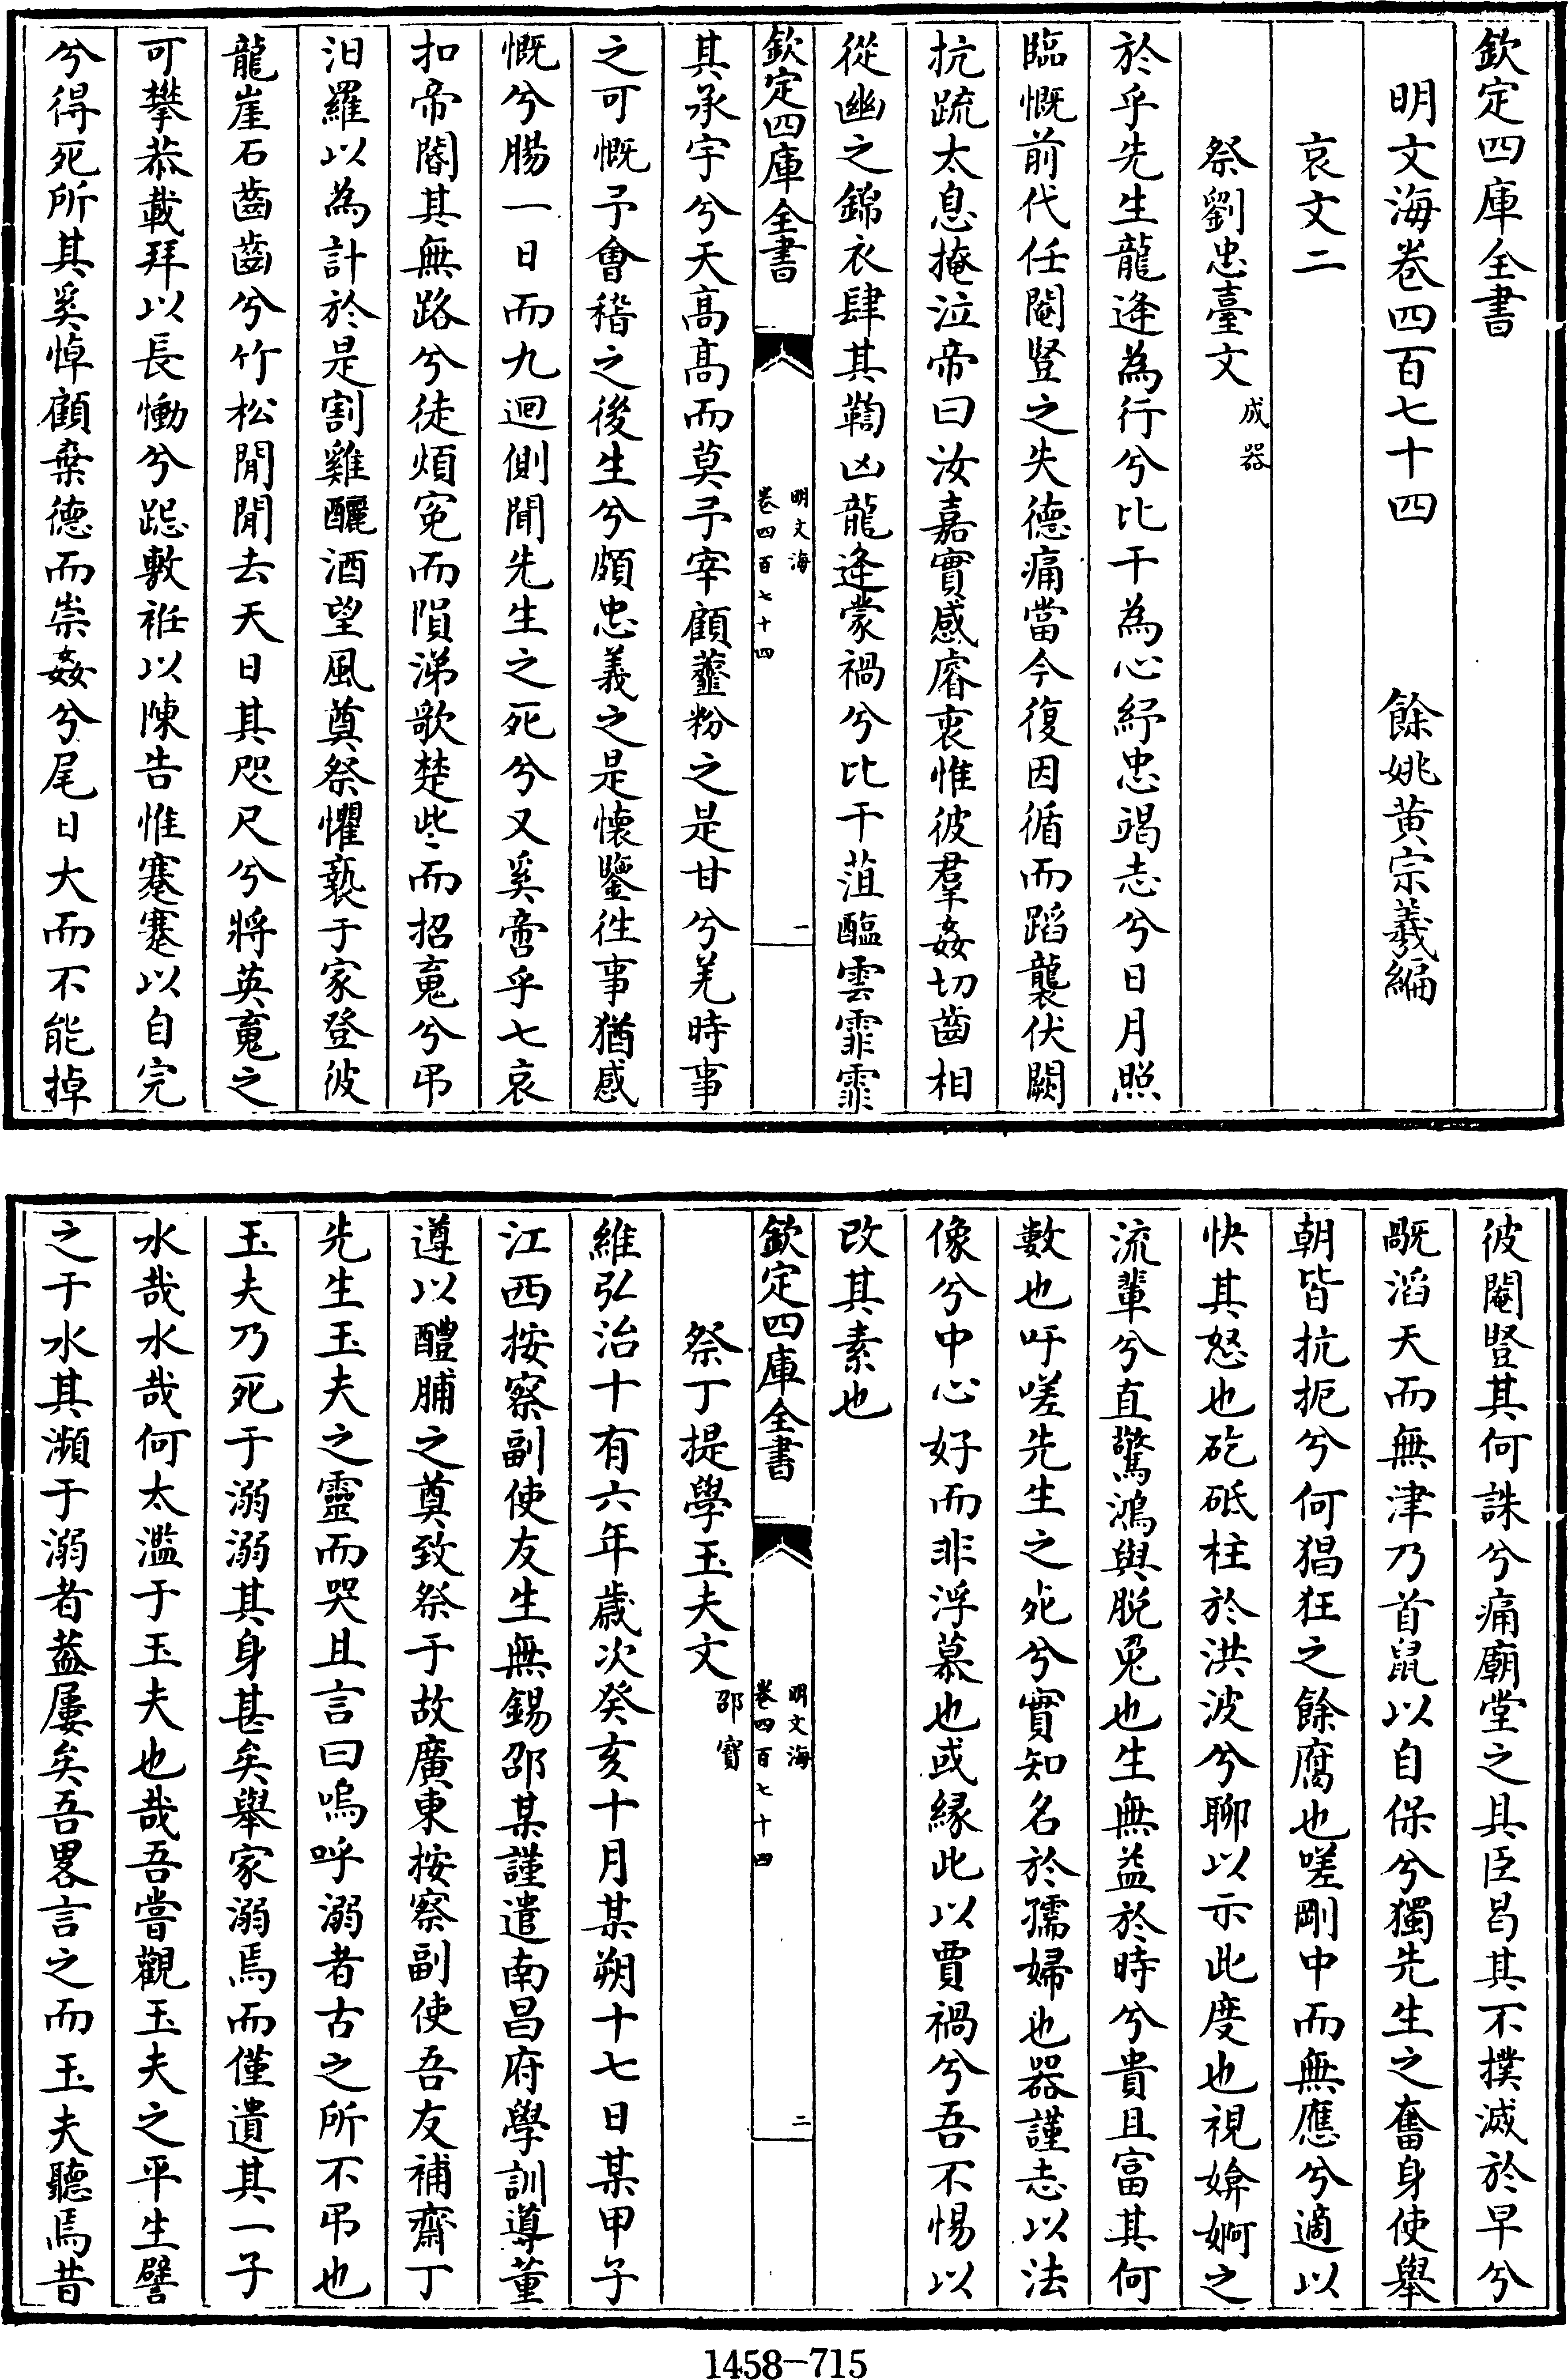 欽定四庫全書
明文海卷四百七十四　餘姚黄宗羲編
哀文二
祭劉忠臺文　成器
於乎先生龍逄為行兮比干為心紓忠竭志兮日月照
臨慨前代任閹豎之失德痛當今復因循而蹈襲伏闕
抗疏太息掩泣帝曰汝嘉實感睿衷惟彼羣姦切齒相
從幽之錦衣肆其鞫凶龍逄蒙禍兮比干菹醢雲霏霏
欽定四庫全書　明文海　卷四百七十四　一
其承宇兮天髙髙而莫予宰顧虀粉之是甘兮羌時事
之可慨予會稽之後生兮頗忠義之是懷鑒徃事猶感
慨兮腸一日而九迴側聞先生之死兮又奚啻乎七哀
扣帝閽其無路兮徒煩寃而隕涕歌楚些而招䰟兮弔
汨羅以為計於是割雞釃酒望風奠祭懼褻于家登彼
龍崖石齒齒兮竹松閒閒去天日其咫尺兮將英䰟之
可攀恭載拜以長慟兮跽敷袵以陳告惟蹇蹇以自完
兮得死所其奚悼顧棄德而崇姦兮尾日大而不能掉
彼閹豎其何誅兮痛廟堂之具臣曷其不撲滅於早兮
旣滔天而無津乃首鼠以自保兮獨先生之奮身使舉
朝皆抗扼兮何猖狂之餘腐也嗟剛中而無應兮適以
快其怒也矻砥柱於洪波兮聊以示此度也視媕婀之
流輩兮直驚鴻與脱兎也生無益於時兮貴且富其何
數也吁嗟先生之死兮實知名於孺婦也器謹志以法
像兮中心好而非浮慕也或縁此以賈禍兮吾不惕以
改其素也
欽定四庫全書　明文海　卷四百七十四　二
祭丁提學玉夫文　邵寳
維弘治十有六年歲次癸亥十月某朔十七日某甲子
江西按察副使友生無錫邵某謹遣南昌府學訓導董
遵以醴脯之奠致祭于故廣東按察副使吾友補齋丁
先生玉夫之靈而哭且言曰嗚呼溺者古之所不弔也
玉夫乃死于溺溺其身甚矣舉家溺焉而僅遺其一子
水哉水哉何太濫于玉夫也哉吾嘗觀玉夫之平生譬
之于水其瀕于溺者葢屢矣吾畧言之而玉夫聽焉昔
1458-715